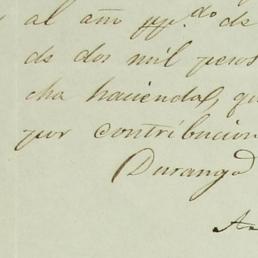 al año pp.do de
de dos mil pesos
cha hacienda, qu
por contribucion
Durango